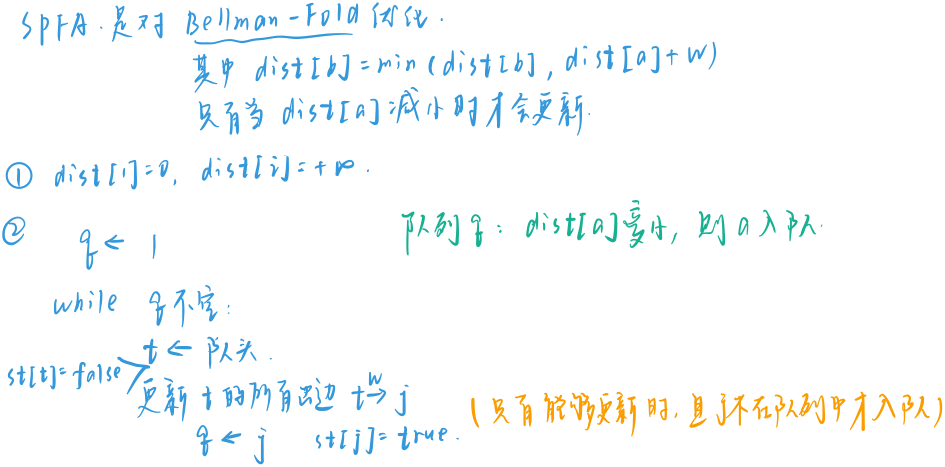 SPFA.是对 Bellman-Fold 优化.
其中 dist[b]=min(dist[b], dist[a]+w)
只有当 dist[a]减小时才会更新.
① dist[1]=0, dist[i]=+∞.
②
队列q: dist[a]变小, 则a入队.
q ← 1
while q不空:
t ← 队头.
st[t]=false
更新t的所有出边 t →w j
q ← j st[j]=true.
(只有能够更新时, 且j不在队列中才入队)